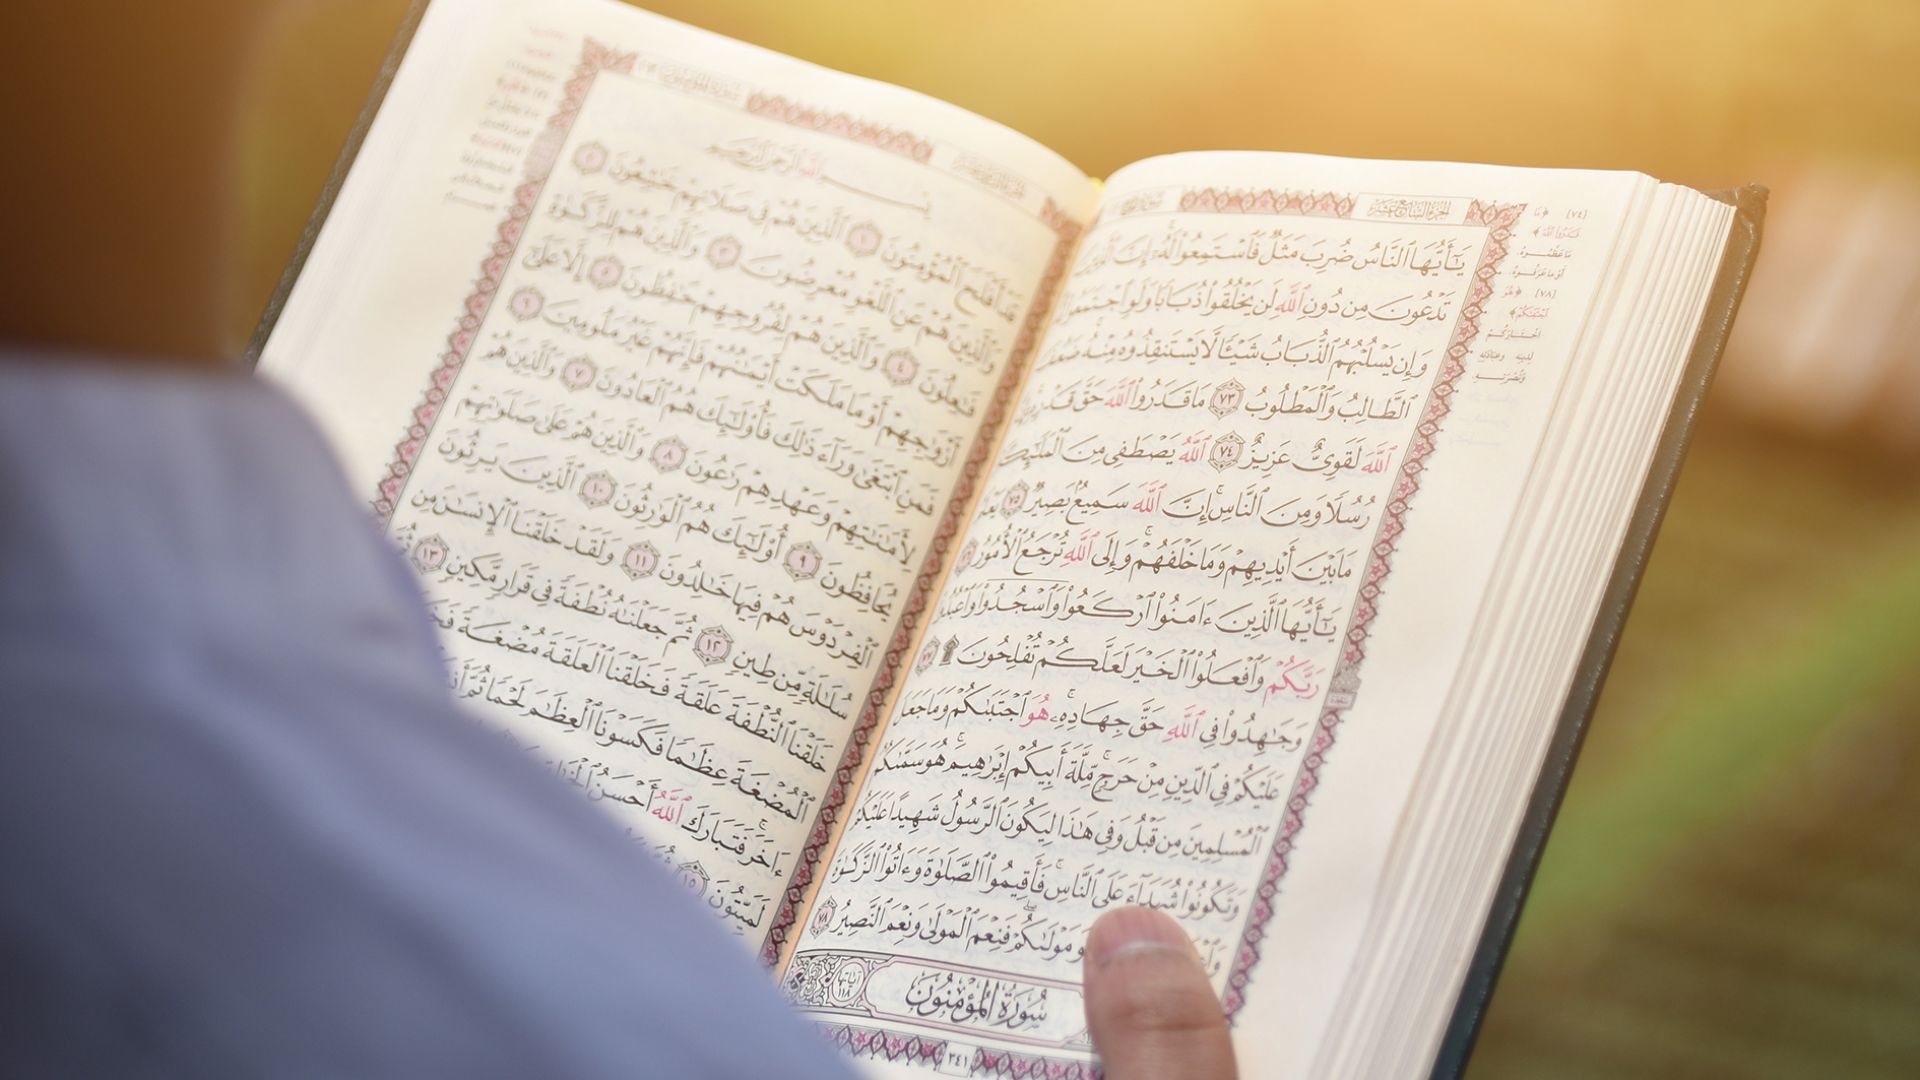 الجزء السابع عشر
يَٰٓأَيُّهَا ٱلنَّاسُ ضُرِبَ مَثَلٌ فَٱسْتَمِعُوا۟ لَهُۥٓ ۚ إِنَّ ٱلَّذِينَ
تَدْعُونَ مِن دُونِ ٱللَّهِ لَن يَخْلُقُوا۟ ذُبَابًا وَلَوِ ٱجْتَمَعُوا۟
وَإِن يَسْلُبْهُمُ ٱلذُّبَابُ شَيْـًٔا لَّا يَسْتَنقِذُوهُ مِنْهُ ۚ ضَعُفَ
ٱلطَّالِبُ وَٱلْمَطْلُوبُ ٧٣ مَا قَدَرُوا۟ ٱللَّهَ حَقَّ قَدْرِهِۦٓ
ٱللَّهَ لَقَوِىٌّ عَزِيزٌ ٧٤ ٱللَّهُ يَصْطَفِى مِنَ ٱلْمَلَٰٓئِكَةِ
رُسُلًا وَمِنَ ٱلنَّاسِ ۚ إِنَّ ٱللَّهَ سَمِيعٌۢ بَصِيرٌ ٧٥ يَعْلَمُ
مَا بَيْنَ أَيْدِيهِمْ وَمَا خَلْفَهُمْ ۗ وَإِلَى ٱللَّهِ تُرْجَعُ ٱلْأُمُورُ
يَٰٓأَيُّهَا ٱلَّذِينَ ءَامَنُوا۟ ٱرْكَعُوا۟ وَٱسْجُدُوا۟ وَٱعْبُدُوا۟
رَبَّكُمْ وَٱفْعَلُوا۟ ٱلْخَيْرَ لَعَلَّكُمْ تُفْلِحُونَ ۩ ٧٧
وَجَٰهِدُوا۟ فِى ٱللَّهِ حَقَّ جِهَادِهِۦ ۚ هُوَ ٱجْتَبَىٰكُمْ وَمَا جَعَلَ
عَلَيْكُمْ فِى ٱلدِّينِ مِنْ حَرَجٍ ۚ مِّلَّةَ أَبِيكُمْ إِبْرَٰهِيمَ ۚ هُوَ سَمَّىٰكُمُ
ٱلْمُسْلِمِينَ مِن قَبْلُ وَفِى هَٰذَا لِيَكُونَ ٱلرَّسُولُ شَهِيدًا عَلَيْكُمْ
وَتَكُونُوا۟ شُهَدَآءَ عَلَى ٱلنَّاسِ ۚ فَأَقِيمُوا۟ ٱلصَّلَوٰةَ وَءَاتُوا۟ ٱلزَّكَوٰةَ
مَوْلَىٰكُمْ ۖ فَنِعْمَ ٱلْمَوْلَىٰ وَنِعْمَ ٱلنَّصِيرُ ٧٨
سُورَةُ المُؤْمِنُونَ آياتها ١١٨
٣٤١
بِسْمِ ٱللَّهِ ٱلرَّحْمَٰنِ ٱلرَّحِيمِ
قَدْ أَفْلَحَ ٱلْمُؤْمِنُونَ ١ ٱلَّذِينَ هُمْ فِى صَلَاتِهِمْ خَٰشِعُونَ ٢
وَٱلَّذِينَ هُمْ عَنِ ٱللَّغْوِ مُعْرِضُونَ ٣ وَٱلَّذِينَ هُمْ لِلزَّكَوٰةِ
فَٰعِلُونَ ٤ وَٱلَّذِينَ هُمْ لِفُرُوجِهِمْ حَٰفِظُونَ ٥ إِلَّا عَلَىٰٓ
أَزْوَٰجِهِمْ أَوْ مَا مَلَكَتْ أَيْمَٰنُهُمْ فَإِنَّهُمْ غَيْرُ مَلُومِينَ ٦
فَمَنِ ٱبْتَغَىٰ وَرَآءَ ذَٰلِكَ فَأُو۟لَٰٓئِكَ هُمُ ٱلْعَادُونَ ٧ وَٱلَّذِينَ هُمْ
لِأَمَٰنَٰتِهِمْ وَعَهْدِهِمْ رَٰعُونَ ٨ وَٱلَّذِينَ هُمْ عَلَىٰ صَلَوَٰتِهِمْ
يُحَافِظُونَ ٩ أُو۟لَٰٓئِكَ هُمُ ٱلْوَٰرِثُونَ ١٠ ٱلَّذِينَ يَرِثُونَ
ٱلْفِرْدَوْسَ هُمْ فِيهَا خَٰلِدُونَ ١١ وَلَقَدْ خَلَقْنَا ٱلْإِنسَٰنَ مِن
سُلَٰلَةٍ مِّن طِينٍ ١٢ ثُمَّ جَعَلْنَٰهُ نُطْفَةً فِى قَرَارٍ مَّكِينٍ ١٣ ثُمَّ
خَلَقْنَا ٱلنُّطْفَةَ عَلَقَةً فَخَلَقْنَا ٱلْعَلَقَةَ مُضْغَةً
ٱلْمُضْغَةَ عِظَٰمًا فَكَسَوْنَا ٱلْعِظَٰمَ لَحْمًا ثُمَّ
ءَاخَرَ ۚ فَتَبَارَكَ ٱللَّهُ أَحْسَنُ
لَمَيِّتُونَ ١٥